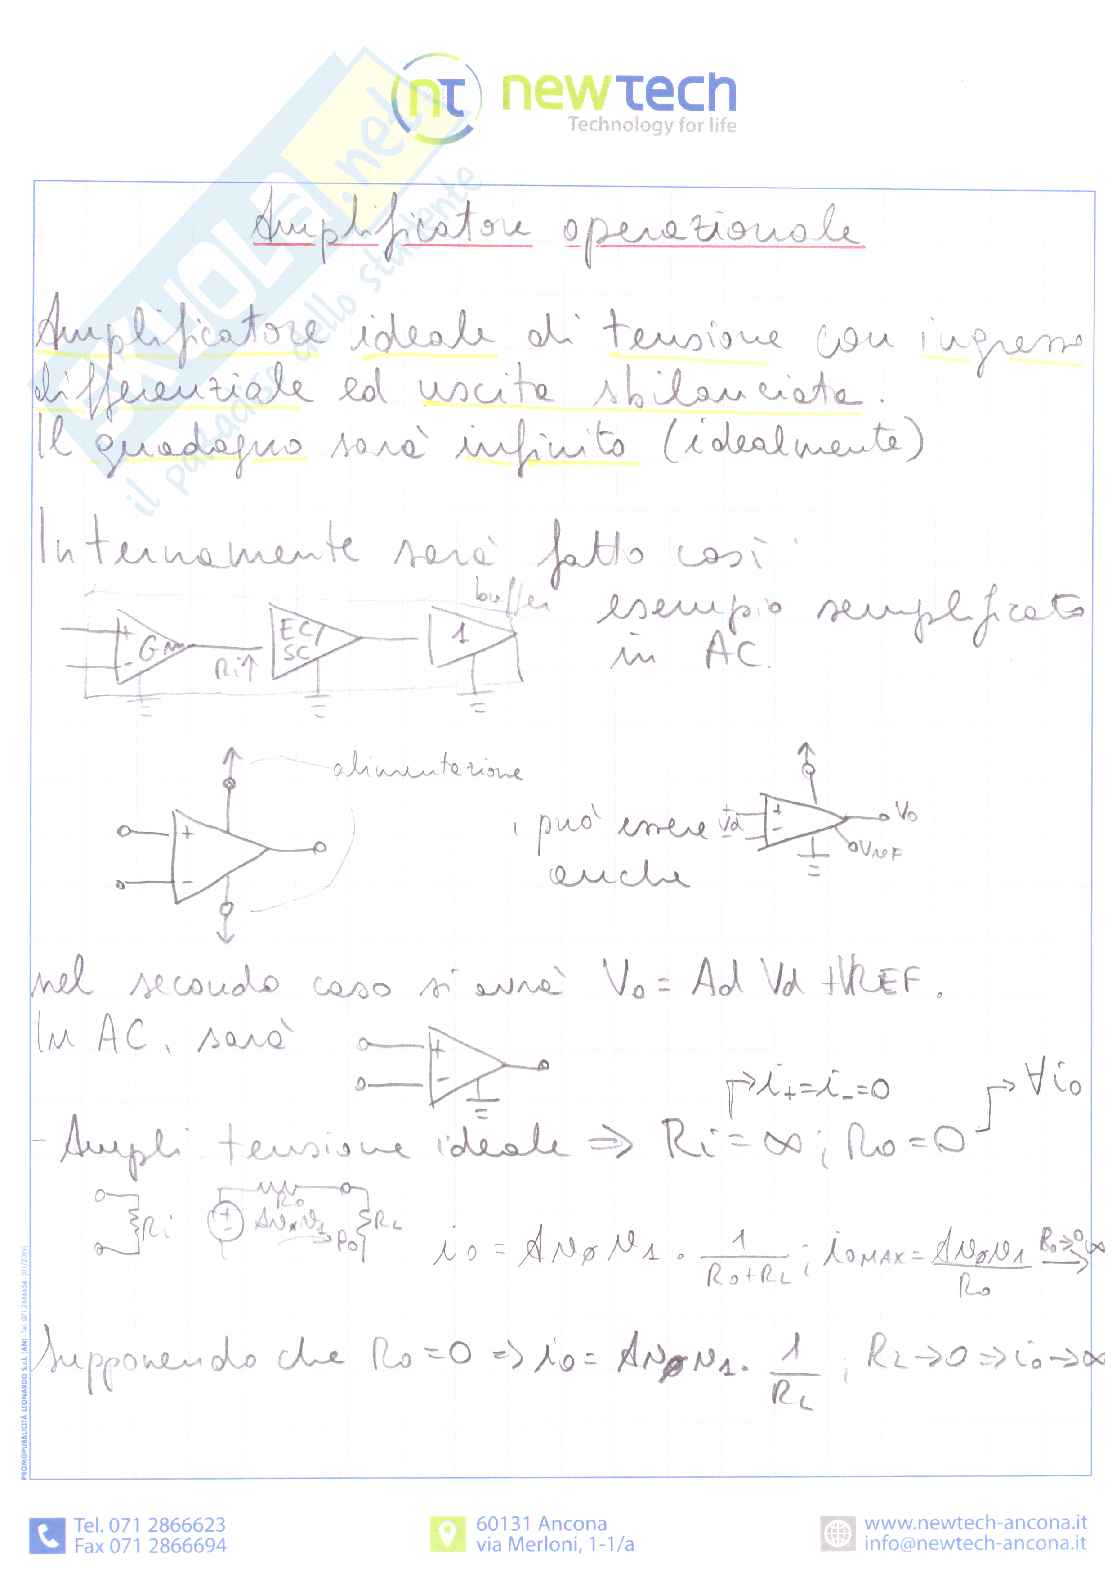 nt newtech
Technology for life
SKUOLA.net
il paradiso dello studente
Amplificatore operazionale
Amplificatore ideale di tensione con ingresso
differenziale ed uscita sbilanciata.
Il guadagno sarà infinito (idealmente)
Internamente sarà fatto così:
buffer
esempio semplificato
in AC.
+ - Gm Ri↑ EC/SC 1
alimentazione
+ -
, può essere
anche
+ Vd - Vo VREF
nel secondo caso si avrà Vo = Ad Vd + VREF.
In AC, sarà
+ -
i+=i-=0
∀io
- Ampli tensione ideale ⇒ Ri = ∞; Ro = 0
Ri + - Av∅v1 Ro Po RL
io = Av∅v1 · 1/(Ro+RL); ioMAX = Av∅v1/Ro Ro→0→ ∞
Supponendo che Ro=0 ⇒ io = Av∅v1 · 1/RL; RL→0 ⇒ io→∞
PROMOPUBBLICITÀ LEONARDO S.r.l. (AN)
Tel. 071 2866623
Fax 071 2866694
60131 Ancona
via Merloni, 1-1/a
www.newtech-ancona.it
info@newtech-ancona.it